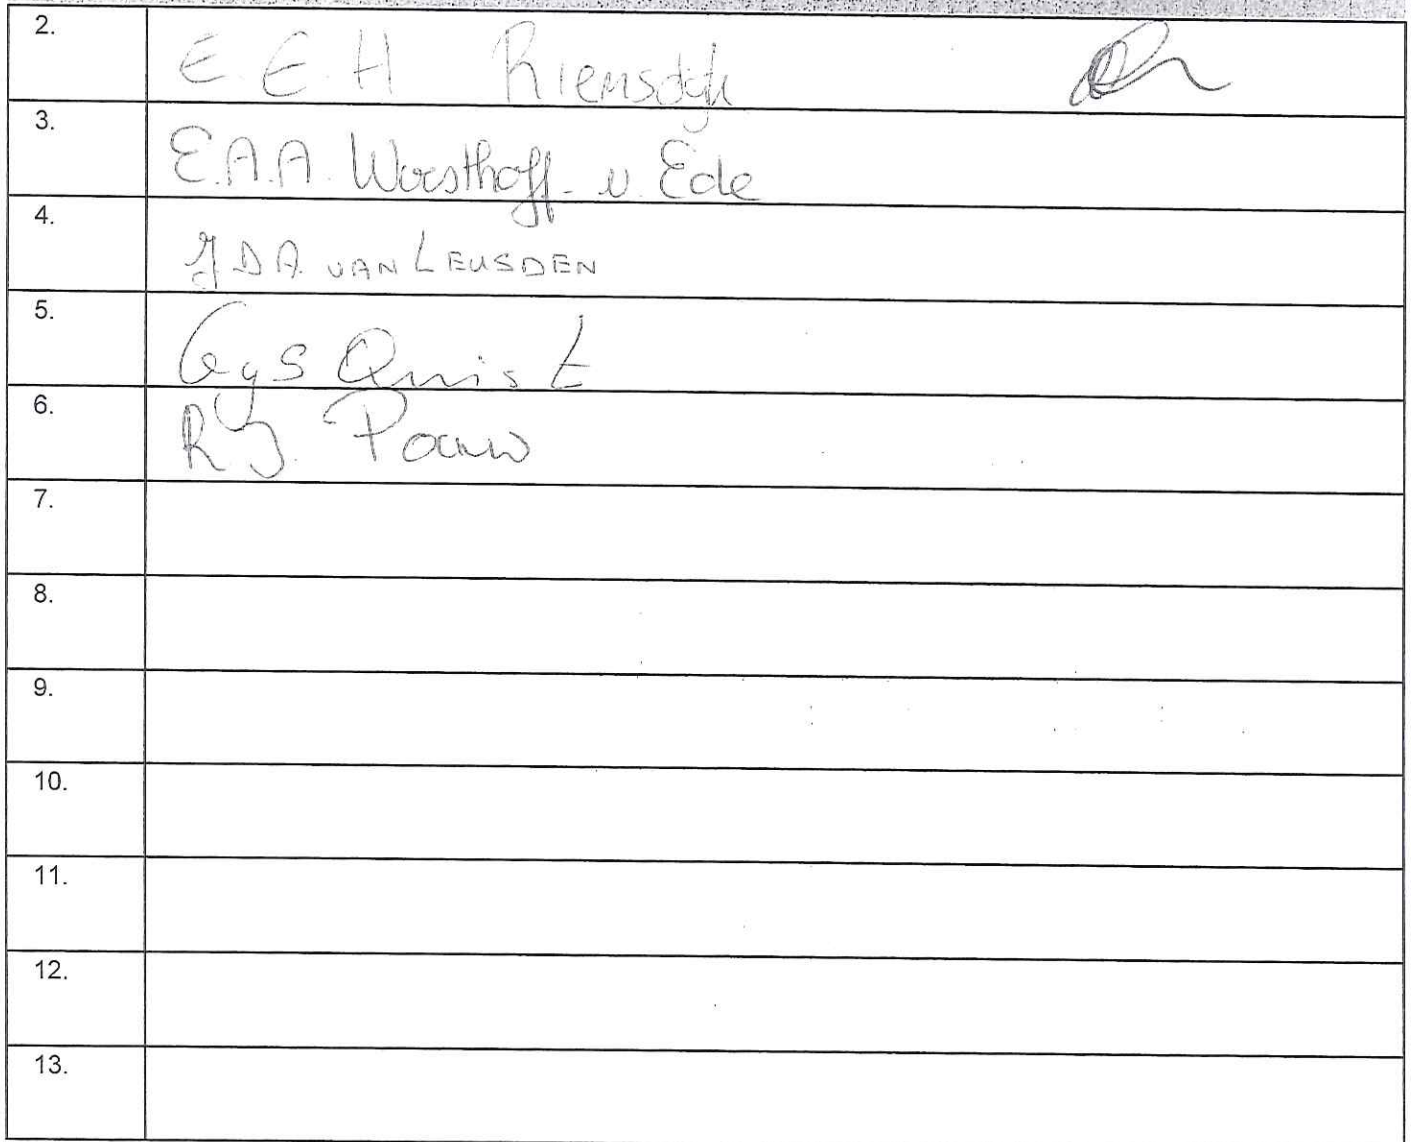 2. E. E. H Riemsdijk
3. E.A.A. Worsthoff - v. Ede
4. J D A. VAN LEUSDEN
5. Gys Quist
6. R J. Pouw
7.
8.
9.
10.
11.
12.
13.